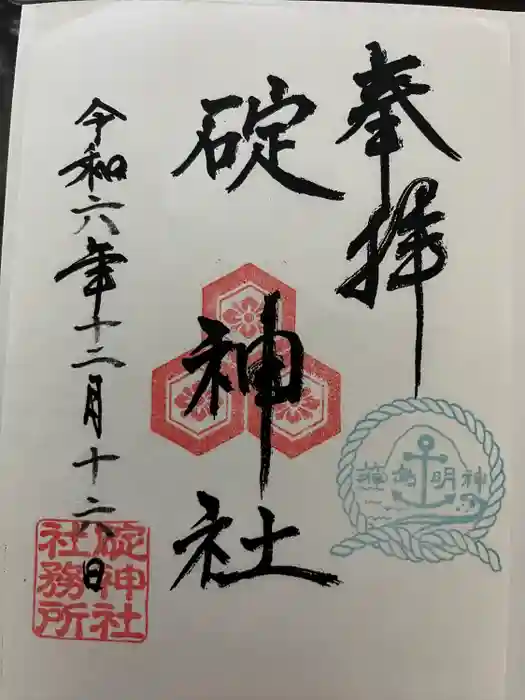 奉拝
碇神社
令和六年十二月十六日
神明島荘
碇神社
社務所